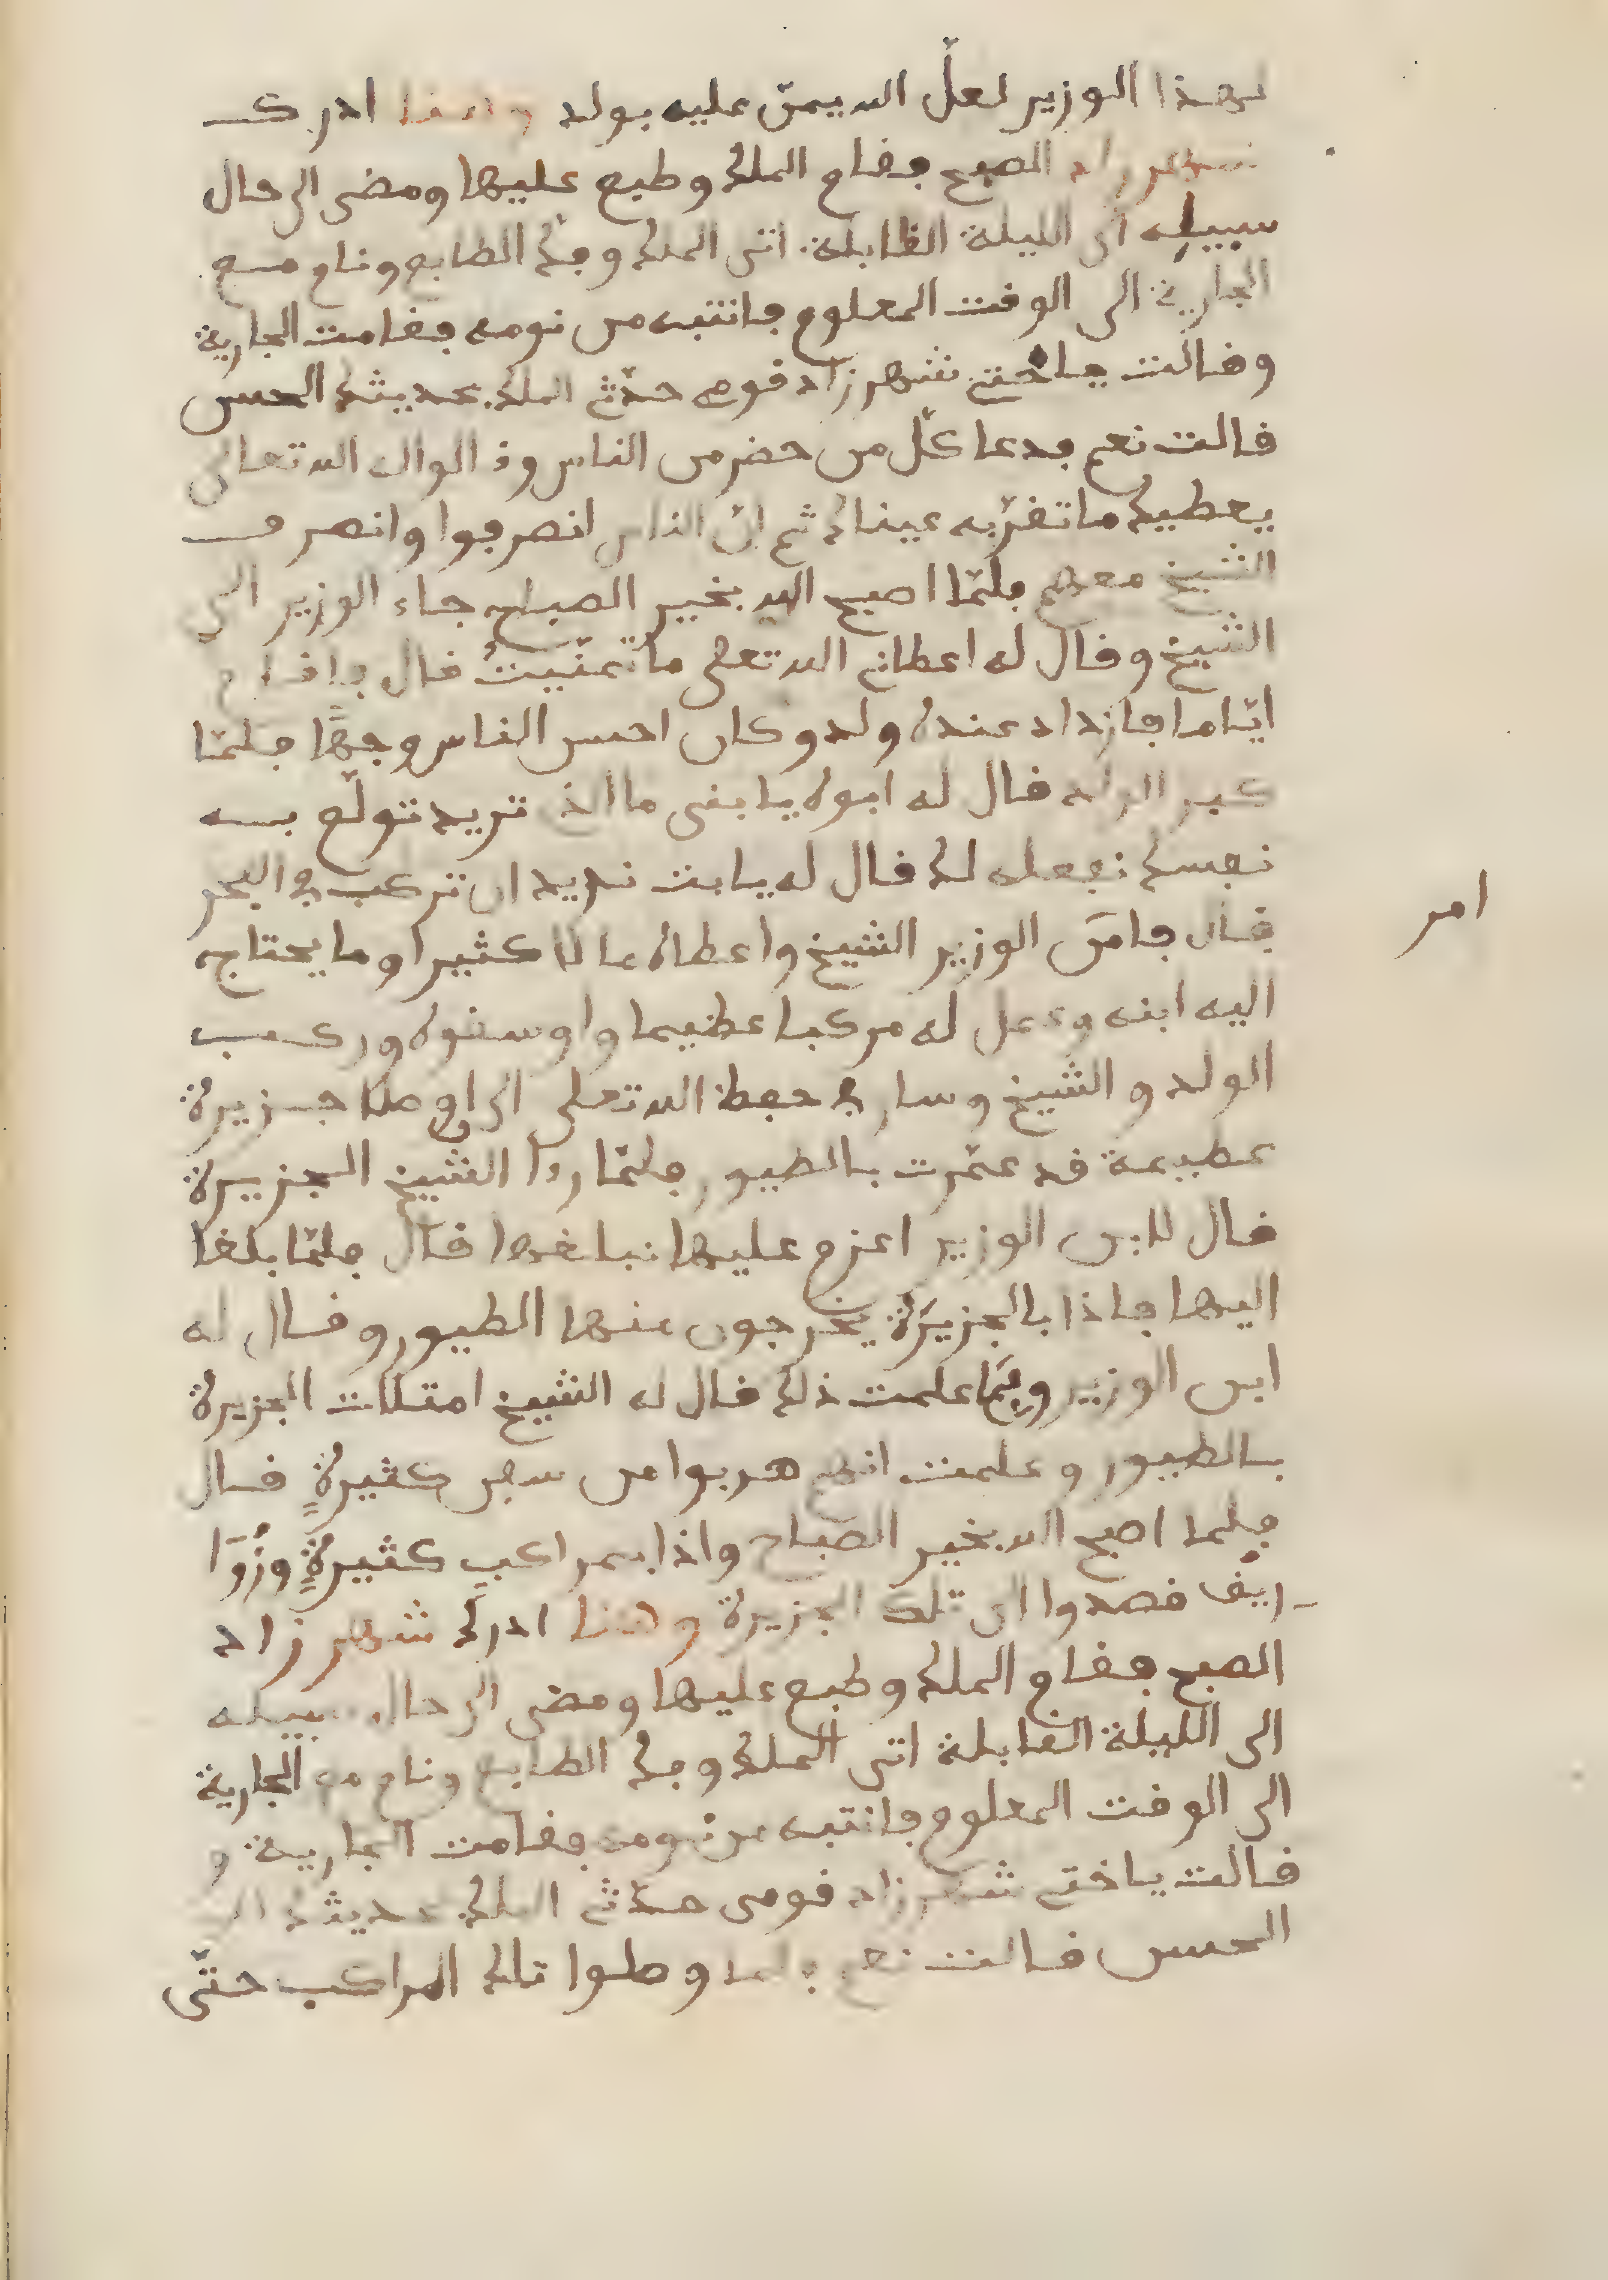 لهذا الوزير لعلّ الله يمنّ عليه بولد وهنا ادرك
شهرزاد الصبح فقام الملك وطبع عليها ومضى الى حال
سبيله الى الليلة القابلة اتى الملك وفكّ الطابع ونام مع
الجارية الى الوقت المعلوم فانتبه من نومه فقامت الجارية
وقالت ياختي شهرزاد قومي حدّثي الملك بحديثك الحسن
قالت نعم فدعا كلّ من حضر من الناس وقالوا له الله تعالى
يعطيك ما تقرّ به عيناك ثم انّ الناس انصرفوا وانصرف
الشيخ معهم فلمّا اصبح الله بخير الصباح جاء الوزير الى
الشيخ وقال له اعطاني الله تعلى ما تمنّيت قال فاقام
ايّاما فازداد عنده ولد وكان احسن الناس وجهًا فلمّا
كبر الولد قال له ابوه يا بنى ما الذي تريد تولّع به
نفسك نفعله لك قال له يابت نريد ان نركب في البحر
قال فامر الوزير الشيخ واعطاه مالا كثيرا وما يحتاج
امر
اليه ابنه وعمل له مركبا عظيما واوسقوه وركب
الولد والشيخ وسار في حفظ الله تعلى الى ان وصلا جزيرة
عظيمة قد عمّرت بالطيور فلمّا راا الشيخ الجزيرة
قال لابن الوزير اعزم عليها قال فلمّا بلغا
اليها فاذا بالجزيرة يخرجون منها الطيور وقال له
ابن الوزير وبمَا علمت ذلك قال له الشيخ امتلات الجزيرة
بالطيور وعلمت انهم هربوا من سفن كثيرةٍ قال
فلما اصبح الله بخير الصباح واذا بمراكبٍ كثيرةٍ وزُوَّا
ريق قصدوا الى تلك الجزيرة وهنا ادرك شهرزاد
الصبح فقام الملك وطبع عليها ومضى الى حال سبيله
الى الليلة القابلة اتى الملك وفك الطابع ونام مع الجارية
الى الوقت المعلوم فانتبه من نومه فقامت الجارية و
قالت ياختي شهرزاد قومى حدّثي الملك بحديثك
الحسن قالت نعم فلما وصلوا تلك المراكب حتّى